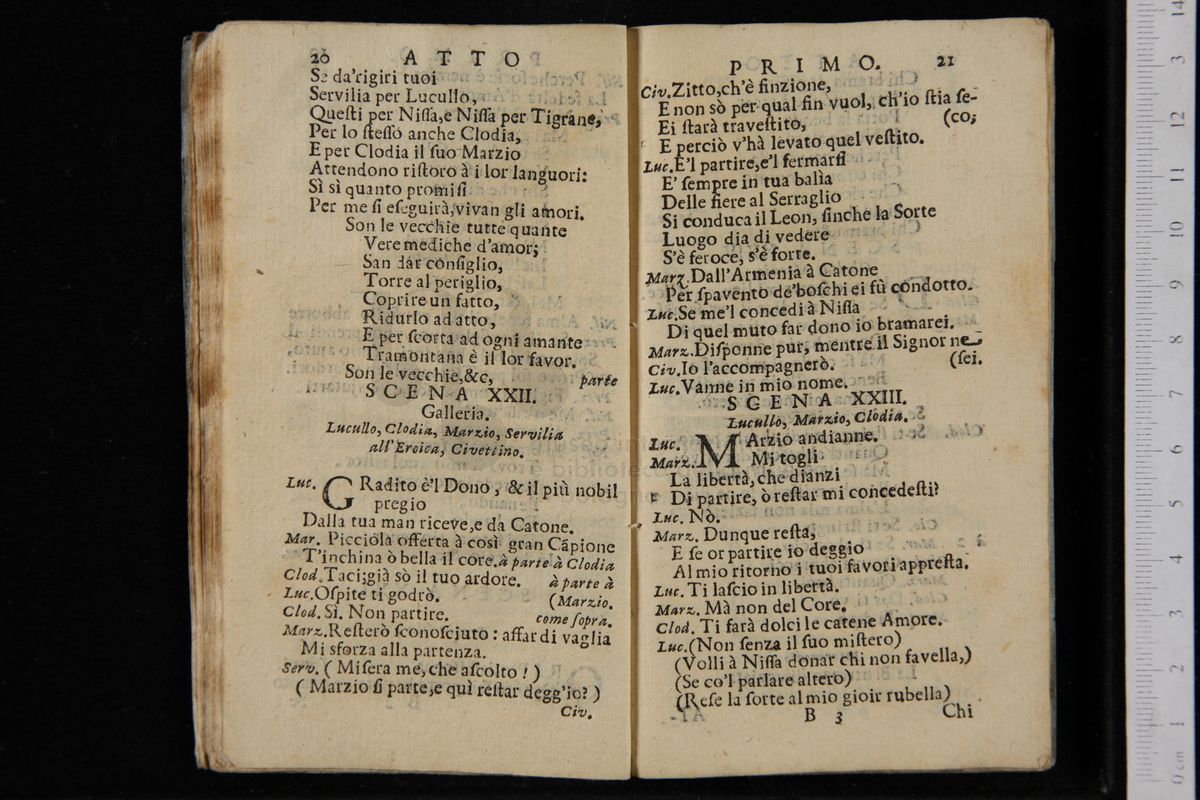 20 ATTO
Se da'rigiri tuoi
Servilia per Lucullo,
Queſti per Niſſa,e Niſſa per Tigrane,
Per lo ſteſſo anche Clodia,
E per Clodia il ſuo Marzio
Attendono riſtoro à i lor languori:
Sì sì quanto promiſi
Per me ſi eſeguirà,vivan gli amori.
Son le vecchie tutte quante
Vere mediche d'amor;
San dar conſiglio,
Torre al periglio,
Coprire un fatto,
Ridurlo ad atto,
E per ſcorta ad ogni amante
Tramontana è il lor favor.
Son le vecchie,&c, parte
SCENA XXII.
Galleria.
Lucullo, Clodia, Marzio, Servilia
all'Eroica, Civettino.
Luc. GRadito è'l Dono, & il più nobil
pregio
Dalla tua man riceve,e da Catone.
Mar. Picciola offerta à così gran Cāpione
T'inchina ò bella il core.à parte à Clodia
Clod.Taci;già sò il tuo ardore. à parte à
Luc.Oſpite ti godrò. (Marzio.
Clod. Sì. Non partire. come ſopra.
Marz.Reſterò ſconoſciuto : affar di vaglia
Mi sforza alla partenza.
Serv. ( Miſera me, che aſcolto ! )
( Marzio ſi parte,e quì reſtar degg'io? )
Civ.
PRIMO. 21
Civ.Zitto,ch'è finzione,
E non sò per qual fin vuol, ch'io ſtia ſe-
Ei ſtarà traveſtito, (co;
E perciò v'hà levato quel veſtito.
Luc.E'l partire,e'l fermarſi
E' ſempre in tua balìa
Delle fiere al Serraglio
Si conduca il Leon, ſinche la Sorte
Luogo dia di vedere
S'è feroce, s'è forte.
Marz.Dall'Armenia à Catone
Per ſpavento de'boſchi ei fù condotto.
Luc.Se me'l concedi à Niſſa
Di quel muto far dono io bramarei.
Marz.Diſponne pur, mentre il Signor ne
Civ.Io l'accompagnerò. (ſei.
Luc.Vanne in mio nome.
SCENA XXIII.
Lucullo, Marzio, Clodia.
Luc. MArzio andianne.
Marz. Mi togli
La libertà, che dianzi
Di partire, ò reſtar mi concedeſti?
Luc. Nò.
Marz. Dunque reſta,
E ſe or partire io deggio
Al mio ritorno i tuoi favori appreſta.
Luc. Ti laſcio in libertà.
Marz. Mà non del Core.
Clod. Ti farà dolci le catene Amore.
Luc.(Non ſenza il ſuo miſtero)
(Volli à Niſſa donar chi non favella,)
(Se co'l parlare altero)
(Reſe la ſorte al mio gioir rubella)
B 3 Chi